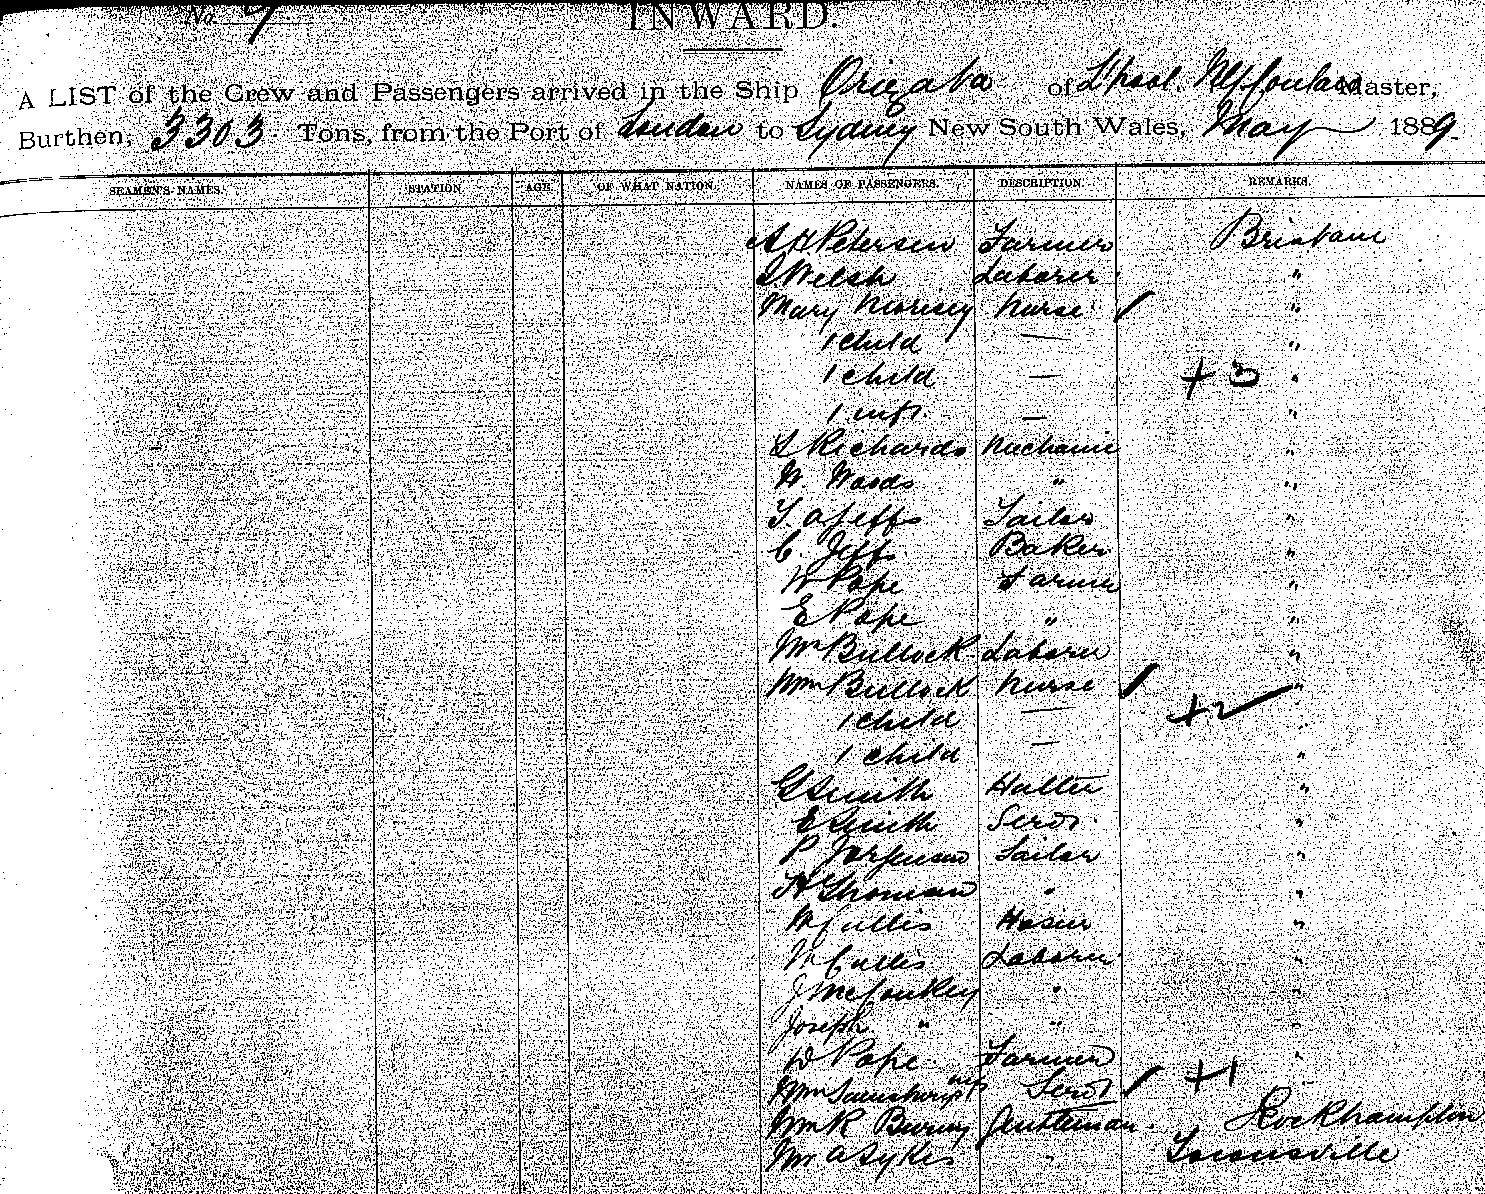 No
INWARD.
A LIST of the Crew and Passengers arrived in the Ship Orizaba of L'pool, Master,
Burthen, 3303 Tons, from the Port of London to Sydney New South Wales, May 1889.
SEAMEN'S NAMES. STATION AGE. OF WHAT NATION. NAMES OF PASSENGERS. DESCRIPTION. REMARKS.
A H Petersen Farmer Brisbane
Welsh Laborer "
Mary Morisey Nurse "
1 child — "
1 child — +3 "
1 inft. — "
S Richards Mechanic "
W Woods " "
T. A Jeffs Tailor "
C. Jeffs Baker "
W Pope Farmer "
E Pope " "
Mr Bullock Laborer "
Mrs Bullock Nurse "
1 child — +2 "
1 child — "
G Smith Hatter "
E Smith Servt. "
P Jorgensen Sailor "
H Thomsen " "
W Cullis "
W Cullis Laborer "
J McConkey " "
Joseph " " "
W Pope Farmer "
Servt +1 "
R Gentleman. Rockhampton
Mr A Sykes " Townsville